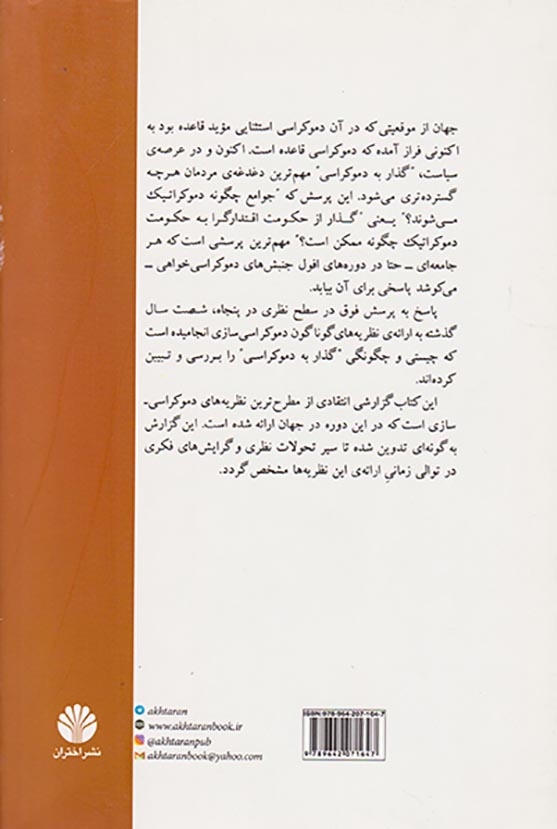 جهان از موقعیتی که در آن دموکراسی استثنایی مؤید قاعده بود به
اکنونی فراز آمده که دموکراسی قاعده است. اکنون و در عرصه‌ی
سیاست، "گذار به دموکراسی" مهم‌ترین دغدغه‌ی مردمان هرچه
گسترده‌تری می‌شود. این پرسش که "جوامع چگونه دموکراتیک
می‌شوند؟" یعنی "گذار از حکومت اقتدارگرا به حکومت
دموکراتیک چگونه ممکن است؟" مهم‌ترین پرسشی است که هر
جامعه‌ای ــ حتا در دوره‌های افول جنبش‌های دموکراسی‌خواهی ــ
می‌کوشد پاسخی برای آن بیابد.
پاسخ به پرسش فوق در سطح نظری در پنجاه، شصت سال
گذشته به ارائه‌ی نظریه‌های گوناگون دموکراسی‌سازی انجامیده است
که چیستی و چگونگی "گذار به دموکراسی" را بررسی و تبیین
کرده‌اند.
این کتاب گزارشی انتقادی از مطرح‌ترین نظریه‌های دموکراسی‌ـ
سازی است که در این دوره در جهان ارائه شده است. این گزارش
به گونه‌ای تدوین شده تا سیر تحولات نظری و گرایش‌های فکری
در توالی زمانیِ ارائه‌ی این نظریه‌ها مشخص گردد.
نشر اختران
akhtaran
www.akhtaranbook.ir
@akhtaranpub
akhtaranbook@yahoo.com
ISBN: 978-964-207-164-7
9 789642 071647